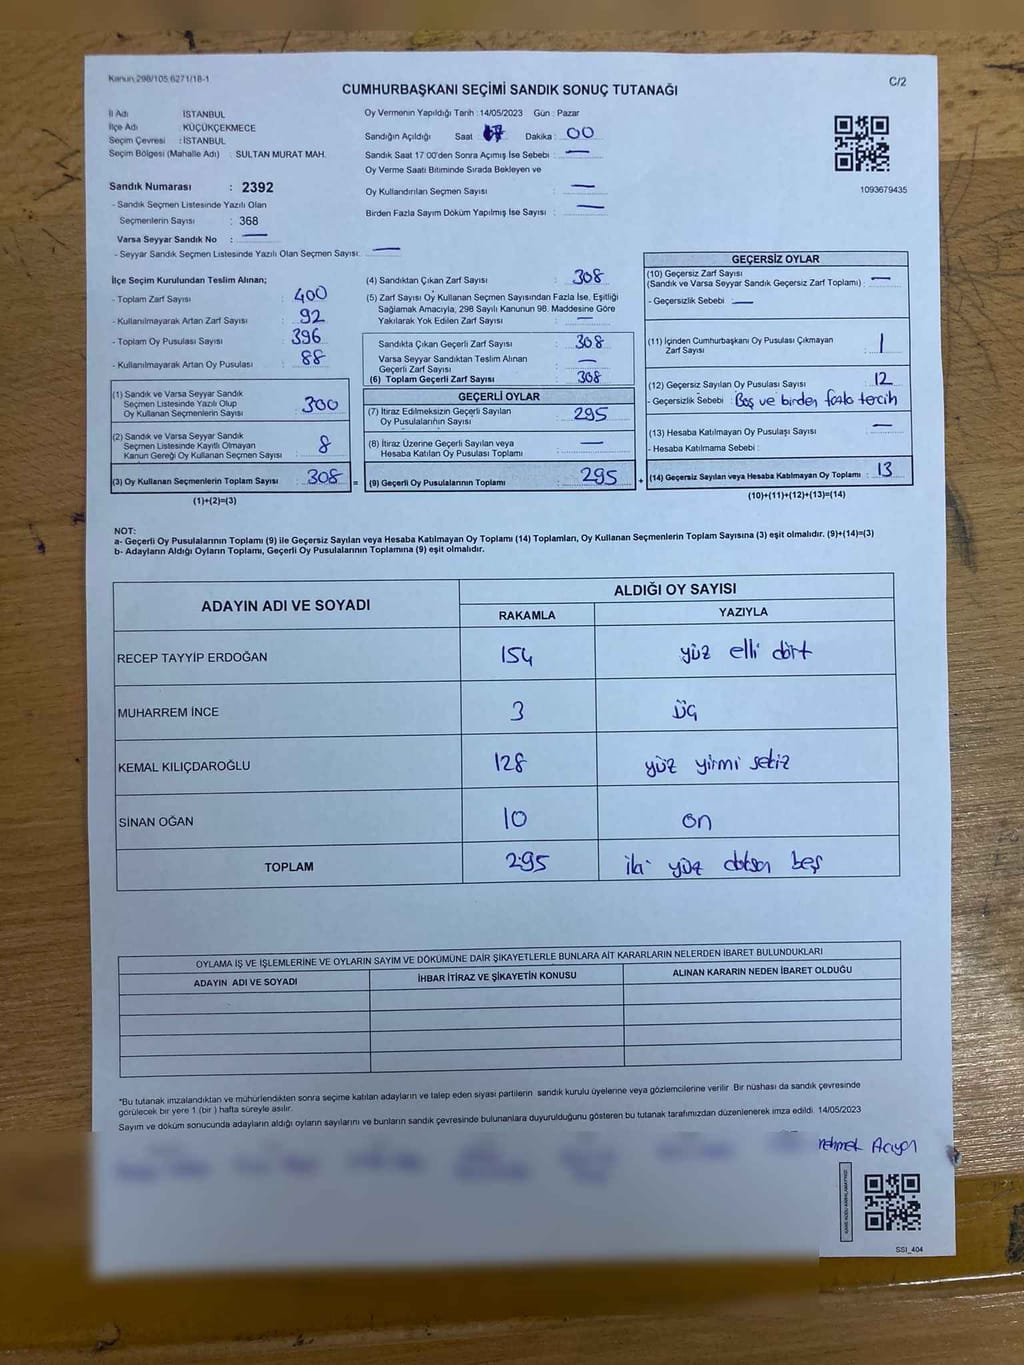 Kanun 298/105 6271/18-1
C/2
CUMHURBAŞKANI SEÇİMİ SANDIK SONUÇ TUTANAĞI
İl Adı İSTANBUL
İlçe Adı : KÜÇÜKÇEKMECE
Seçim Çevresi : İSTANBUL
Seçim Bölgesi (Mahalle Adı) : SULTAN MURAT MAH.
Sandık Numarası : 2392
- Sandık Seçmen Listesinde Yazılı Olan
Seçmenlerin Sayısı : 368
Varsa Seyyar Sandık No : —
- Seyyar Sandık Seçmen Listesinde Yazılı Olan Seçmen Sayısı: —
Oy Vermenin Yapıldığı Tarih : 14/05/2023 Gün : Pazar
Sandığın Açıldığı Saat Dakika : 00
Sandık Saat 17 00'den Sonra Açımış İse Sebebi : —
Oy Verme Saati Bitiminde Sırada Bekleyen ve
Oy Kullandırılan Seçmen Sayısı —
Birden Fazla Sayım Döküm Yapılmış İse Sayısı : —
1093679435
İlçe Seçim Kurulundan Teslim Alınan;
- Toplam Zarf Sayısı : 400
- Kullanılmayarak Artan Zarf Sayısı : 92
- Toplam Oy Pusulası Sayısı : 396
- Kullanılmayarak Artan Oy Pusulası : 88
(1) Sandık ve Varsa Seyyar Sandık
Seçmen Listesinde Yazılı Olup
Oy Kullanan Seçmenlerin Sayısı : 300
(2) Sandık ve Varsa Seyyar Sandık
Seçmen Listesinde Kayıtlı Olmayan
Kanun Gereği Oy Kullanan Seçmen Sayısı : 8
(3) Oy Kullanan Seçmenlerin Toplam Sayısı : 308 =
(1)+(2)=(3)
(4) Sandıktan Çıkan Zarf Sayısı : 308
(5) Zarf Sayısı Oy Kullanan Seçmen Sayısından Fazla İse, Eşitliği
Sağlamak Amacıyla, 298 Sayılı Kanunun 98. Maddesine Göre
Yakılarak Yok Edilen Zarf Sayısı : —
Sandıkta Çıkan Geçerli Zarf Sayısı : 308
Varsa Seyyar Sandıktan Teslim Alınan
Geçerli Zarf Sayısı : —
(6) Toplam Geçerli Zarf Sayısı : 308
GEÇERLİ OYLAR
(7) İtiraz Edilmeksizin Geçerli Sayılan
Oy Pusulalarının Sayısı : 295
(8) İtiraz Üzerine Geçerli Sayılan veya
Hesaba Katılan Oy Pusulası Toplamı : —
(9) Geçerli Oy Pusulalarının Toplamı : 295 +
GEÇERSİZ OYLAR
(10) Geçersiz Zarf Sayısı
(Sandık ve Varsa Seyyar Sandık Geçersiz Zarf Toplamı) : —
- Geçersizlik Sebebi : —
(11) İçinden Cumhurbaşkanı Oy Pusulası Çıkmayan
Zarf Sayısı : 1
(12) Geçersiz Sayılan Oy Pusulası Sayısı : 12
- Geçersizlik Sebebi : Boş ve birden fazla tercih
(13) Hesaba Katılmayan Oy Pusulaşı Sayısı : —
- Hesaba Katılmama Sebebi :
(14) Geçersiz Sayılan veya Hesaba Katılmayan Oy Toplamı : 13
(10)+(11)+(12)+(13)=(14)
NOT:
a- Geçerli Oy Pusulalarının Toplamı (9) ile Geçersiz Sayılan veya Hesaba Katılmayan Oy Toplamı (14) Toplamları, Oy Kullanan Seçmenlerin Toplam Sayısına (3) eşit olmalıdır. (9)+(14)=(3)
b- Adayların Aldığı Oyların Toplamı, Geçerli Oy Pusulalarının Toplamına (9) eşit olmalıdır.
ADAYIN ADI VE SOYADI ALDIĞI OY SAYISI
RAKAMLA YAZIYLA
RECEP TAYYİP ERDOĞAN 154 yüz elli dört
MUHARREM İNCE 3 üç
KEMAL KILIÇDAROĞLU 128 yüz yirmi sekiz
SİNAN OĞAN 10 on
TOPLAM 295 iki yüz doksan beş
OYLAMA İŞ VE İŞLEMLERİNE VE OYLARIN SAYIM VE DÖKÜMÜNE DAİR ŞİKAYETLERLE BUNLARA AİT KARARLARIN NELERDEN İBARET BULUNDUKLARI
ADAYIN ADI VE SOYADI İHBAR İTİRAZ VE ŞİKAYETİN KONUSU ALINAN KARARIN NEDEN İBARET OLDUĞU
*Bu tutanak imzalandıktan ve mühürlendikten sonra seçime katılan adayların ve talep eden siyasi partilerin sandık kurulu üyelerine veya gözlemcilerine verilir Bir nüshası da sandık çevresinde
görülecek bir yere 1 (bir ) hafta süreyle asılır.
Sayım ve döküm sonucunda adayların aldığı oyların sayılarını ve bunların sandık çevresinde bulunanlara duyurulduğunu gösteren bu tutanak tarafımızdan düzenlenerek imza edildi. 14/05/2023
SSI_404